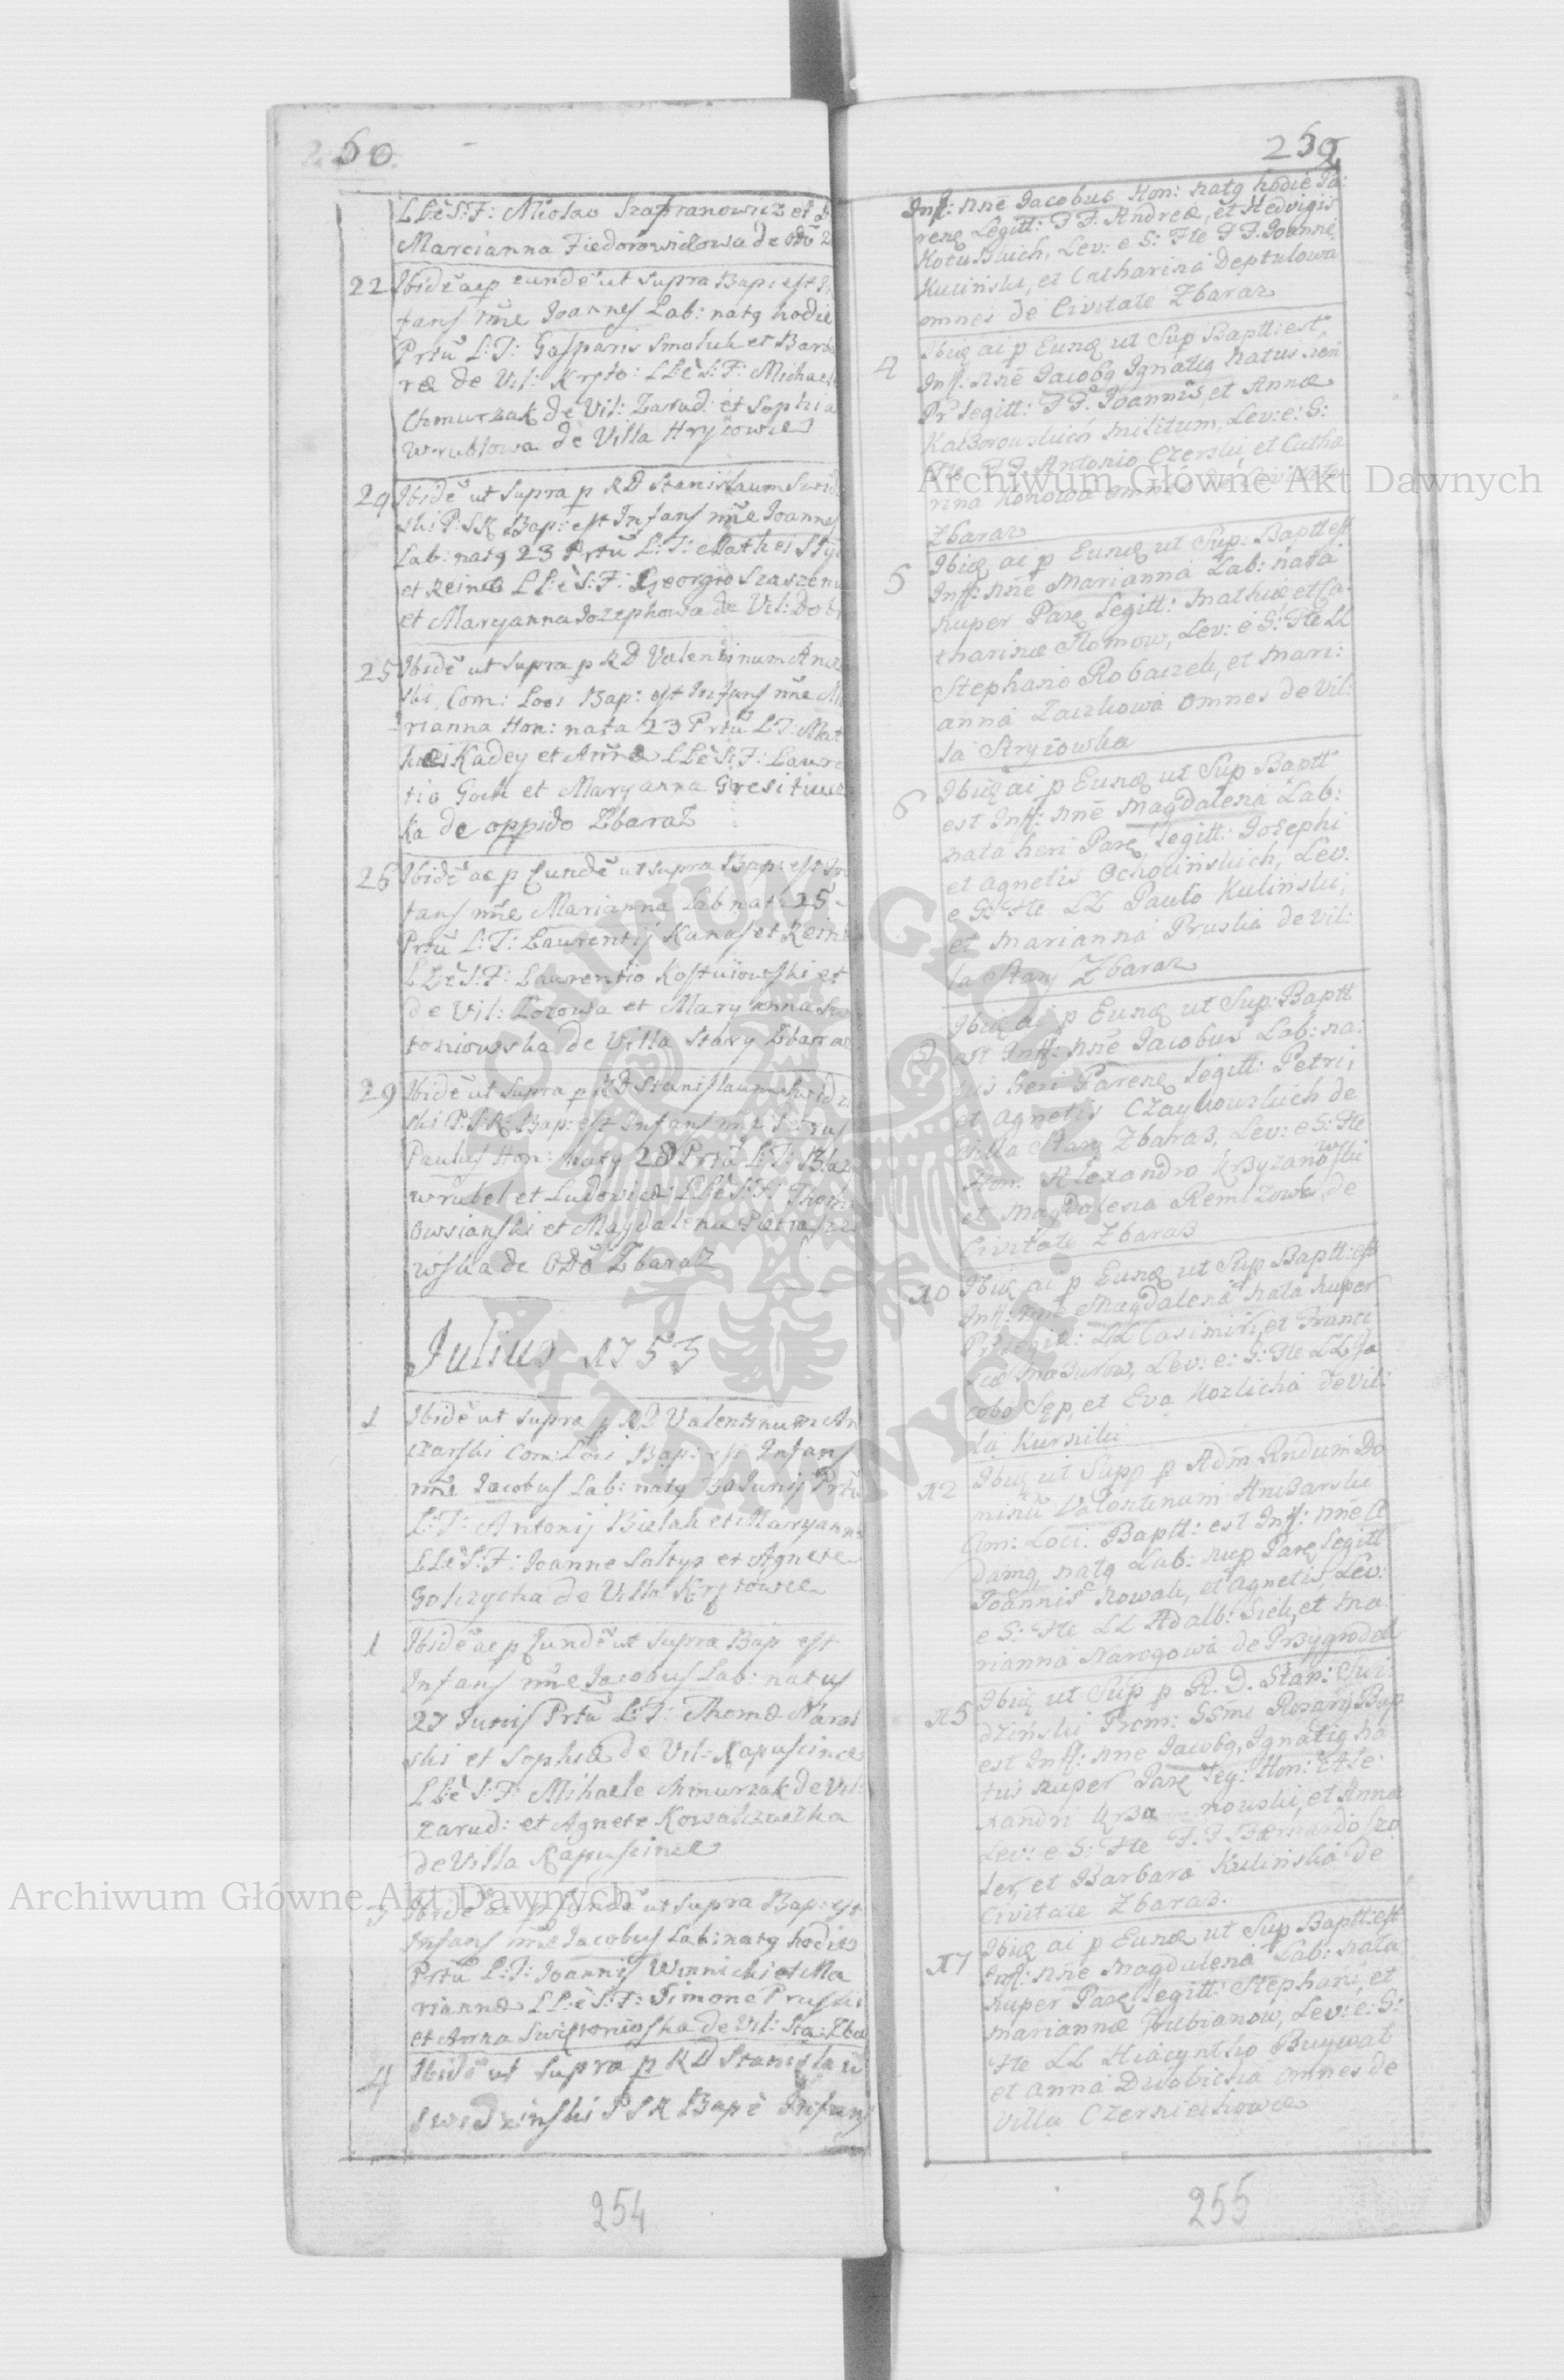 260.
LLèS:F: Miolao Szafranowicz et
Marcianna Fiedorowiczowa de Odo
22 Ibidē ac p eundē ut supra Bap: est In
fans nn̄e Joannes Lab: natq hodie
Prtū L:T: Gasparis Smoluk et Barba
ræ de Vil: Krſto: LLèS:F: Michaele
Chmurzak de Vil: Zarud: et Sophia
Wrublowa de Villa Hryćowce
24 Ibidē ut supra p RD Stanislaum Swid
ski P:SR Bap: est Infans nn̄e Joannes
Lab: natq 23 Prtū L:T: Mathei
et Reinæ LLèS:F: Georgio Szaszen
et Maryanna Jozephowa de Vil: Dob
25 Ibidē ut supra p RD Valentinum
ski Com: Loci Bap: est Infans nn̄e Ma
rianna Hon: nata 23 Prtū L:T: Mat
hæi Kadey et Annæ LLèS:F: Laure
tio Gock et Maryanna
ka de oppido Zbaraz
26 Ibidē ac p Eundē ut supra Bap: est In
fans nn̄e Marianna Lab nat: 25
Prtū L:T: Laurentij Kunas et Rein
LLèS:F: Laurentio et
de Vil: Lozowa et Maryanna
toniowska de Villa Stary Zbaraz
29 Ibidē ut supra p RD Stanislaum Swidz
ski P:S:R: Bap: est Infans nn̄e Petrus
Paulus Hon: natq 28 Prtū L:T: Blaz
Wrubel et Ludovicæ LLèS:F: Thom
Owsianski et Magdalena
wska de Odo Zbaraz
Julius 1753
1 Ibidē ut supra p RD Valentinum An
czarski Com: Loci Bap: est Infans
nn̄e Jacobus Lab: natq 30 Junij Prtū
L:T: Antonij Bielak et Maryannæ
LLèS:F: Joanne Soltys et Agnete
de Villa
1 Ibidē ac p Eundē ut supra Bap est
Infans nn̄e Jacobus Lab: natus
27 Junij Prtū L:T: Thomæ
ski et Sophiæ de Vil: Kapuscince
LLèS:F: Mihaele Chmurzak de Vil:
Zarud: et Agnete
de Villa Kapuscince
3 Ibidē ac p Eundē ut supra Bap: est
Infans nn̄e Jacobus Lab: natq hodie
Prtū L:T: Joannis Winnicki et Ma
riannæ LLèS:F: Simone Pruski
et Anna de Vil: Sta: Zba
4 Ibidē ut supra p RD Stanislau
Swidzinski PSR Bap è Infans
254
Inf: nn̄e Jacobus Hon: natq hodie Pa:
renq Legitt: FF. Andreæ, et Hedvigis
Kotuskich, Lev: e S: Fte FF. Joanne
Kuciński, et Catharina Deptulowa
omnes de Civitate Zbaraz
4 Ibiq ai p Eunq ut Sup Baptt: est,
Inf: nn̄e Jacobq Ignatiq natus
Pr Legitt: FF. Joannis, et Annæ
militum, Lev: e: S:
Fte FF. Antonio Czerski, et Catha
rina Konowa omnes de Civitate
Zbaraz
5 Ibiq ac p Eunq ut Sup: Baptt est
Inf: nn̄e Marianna Lab: nata
nuper Parq Legitt: Mathiæ et Ca:
tharinæ Slomow, Lev: e S: Fte LL
Stephano Robaczek, et Mari:
anna Zaczkowa omnes de Vil:
la Stryiowka
6 Ibiq ai p Eunq ut Sup Baptt
est Inf: nn̄e Magdalena Lab:
nata heri Parq Legitt: Josephi
et Agnetis Ochocińskich, Lev:
e S: Fte LL Paulo Kuliński,
et Marianna Pruska de Vil:
la Stary Zbaraz
Ibiq ai p Eunq ut Sup: Baptt
est Inf: nn̄e Jacobus Lab: na:
tus heri Parenq Legitt: Petri,
et Agnetis Czaykowskich de
Villa Stary Zbaraz, Lev: e S: Fte
Hon: Alexandro Krzyzanowski
et Magdalena de
Civitate Zbaraz
10 Ibiq ai p Eunq ut Sup Baptt: est
Inf: nn̄e Magdalena nata nuper
Pr Legitt: LL Casimiri, et Franci
scæ Mazurow, Lev: e: S: Fte LL Ja
cobo Sęp, et Eva Kozlicha de Vil:
la Kurniki
12 Ibiq ut Supp p Adm Rndum Do
minū Valentinum
Com: Loci. Baptt: est Inf: nn̄e A
damq, natq Lab: nup Parq Legitt
Joannis Nowak, et Agnetis, Lev:
e S: Fte LL Adalb: Siek, et Ma
rianna Narogowa de Przygrodek
15 Ibiq ut Sup p R. D. Stan: Swi
dziński Prom: SSmi Rosarij Bap
est Inf: nn̄e Jacobq, Ignatiq na
tus nuper Parq Leg: Hon: Ale
xandri Krzyzanowski, et Anna
Lev: e S: Fte F.F Bernardo
ler, et Barbara Kulińska de
Civitate Zbaraz.
17 Ibiq ai p Eunq ut Sup Baptt: est
Inf: nn̄e Magdalena Lab: nata
nuper Parq Legitt: Stephani, et
Mariannæ Hrubianow, Lev: e: S:
Fte LL Hiacyntho Buywat
et Anna Dwobicka omnes de
Villa Czernichowce
255
Archiwum Główne Akt Dawnych
Archiwum Główne Akt Dawnych
ARCHIWUM GŁÓWNE AKT DAWNYCH